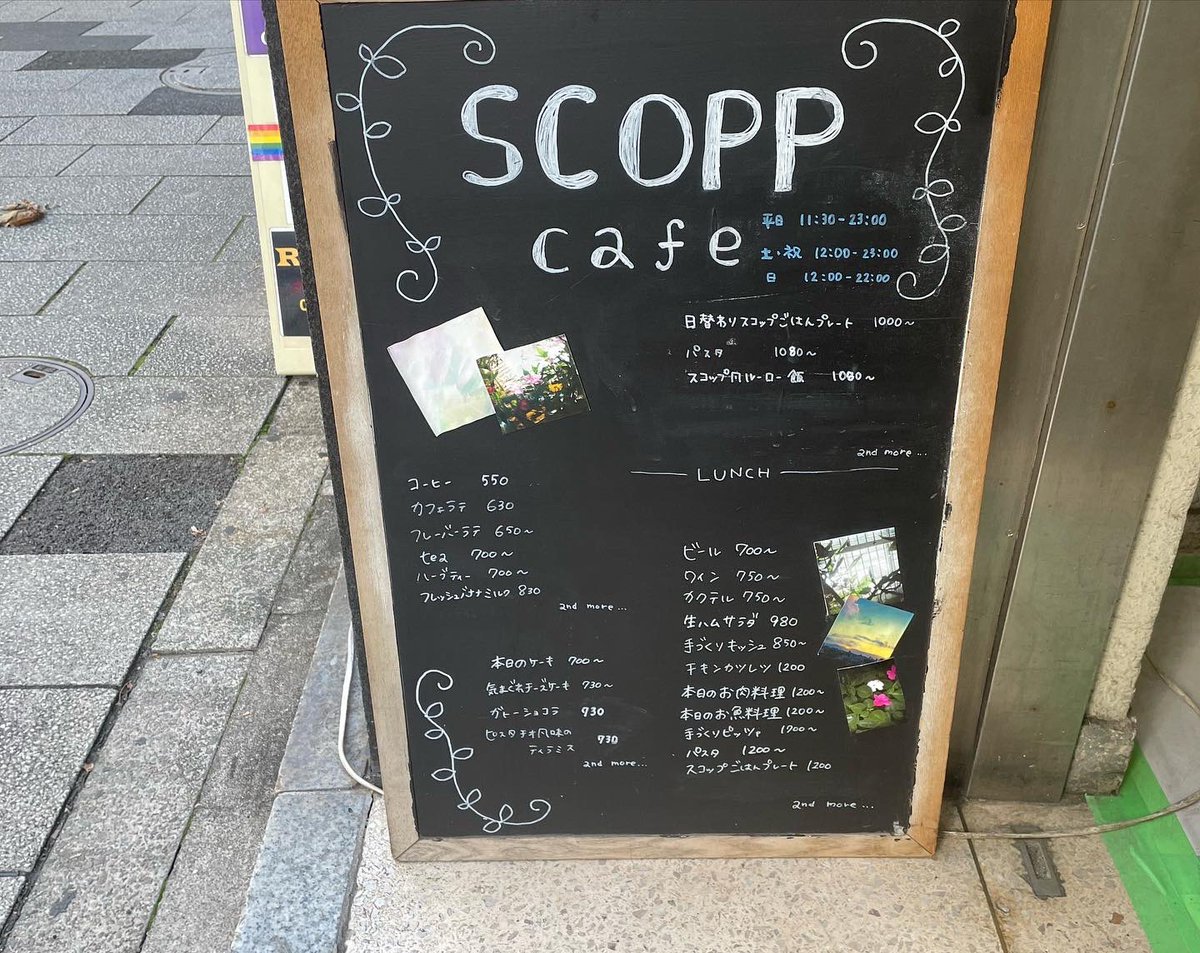 SCOPP
cafe
平日 11:30-23:00
土・祝 12:00-23:00
日 12:00-22:00
日替わりスコップごはんプレート 1000〜
パスタ 1080〜
スコップ風ルーロー飯 1080〜
and more...
LUNCH
コーヒー 550
カフェラテ 630
フレーバーラテ 650〜
tea 700〜
ハーブティー 700〜
フレッシュバナナミルク 830
and more...
本日のケーキ 700〜
気まぐれチーズケーキ 730〜
ガトーショコラ 730
ピスタチオ風味の
ティラミス 730
and more...
ビール 700〜
ワイン 750〜
カクテル 750〜
生ハムサラダ 980
手づくりキッシュ 850〜
チキンカツレツ 1200
本日のお肉料理 1200〜
本日のお魚料理 1200〜
手づくりピッツァ 1200〜
パスタ 1200〜
スコップごはんプレート 1200
and more...